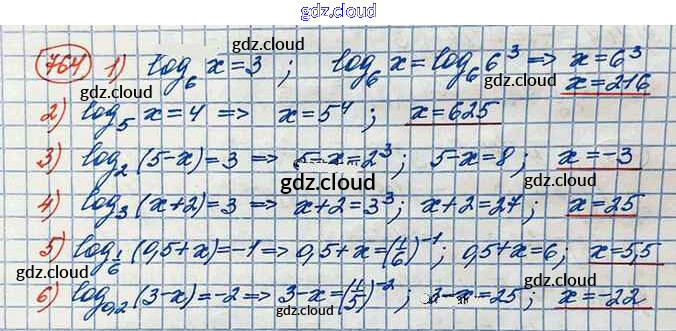 gdz.cloud
764 1) log₆ x = 3 ; log₆ x = log₆ 6³ => x = 6³
gdz.cloud gdz.cloud
x = 216
gdz.cloud gdz.cloud
2) log₅ x = 4 => x = 5⁴ ; x = 625
gdz.cloud
3) log₂ (5-x) = 3 => 5-x = 2³ ; 5-x = 8 ; x = -3
gdz.cloud gdz.cloud gdz.cloud
4) log₃ (x+2) = 3 => x+2 = 3³ ; x+2 = 27 ; x = 25
gdz.cloud gdz.cloud
5) log_(1/6) (0,5+x) = -1 => 0,5+x = (1/6)⁻¹ ; 0,5+x = 6 ; x = 5,5
gdz.cloud gdz.cloud
6) log₀,₂ (3-x) = -2 => 3-x = (1/5)⁻² ; 3-x = 25 ; x = -22
gdz.cloud